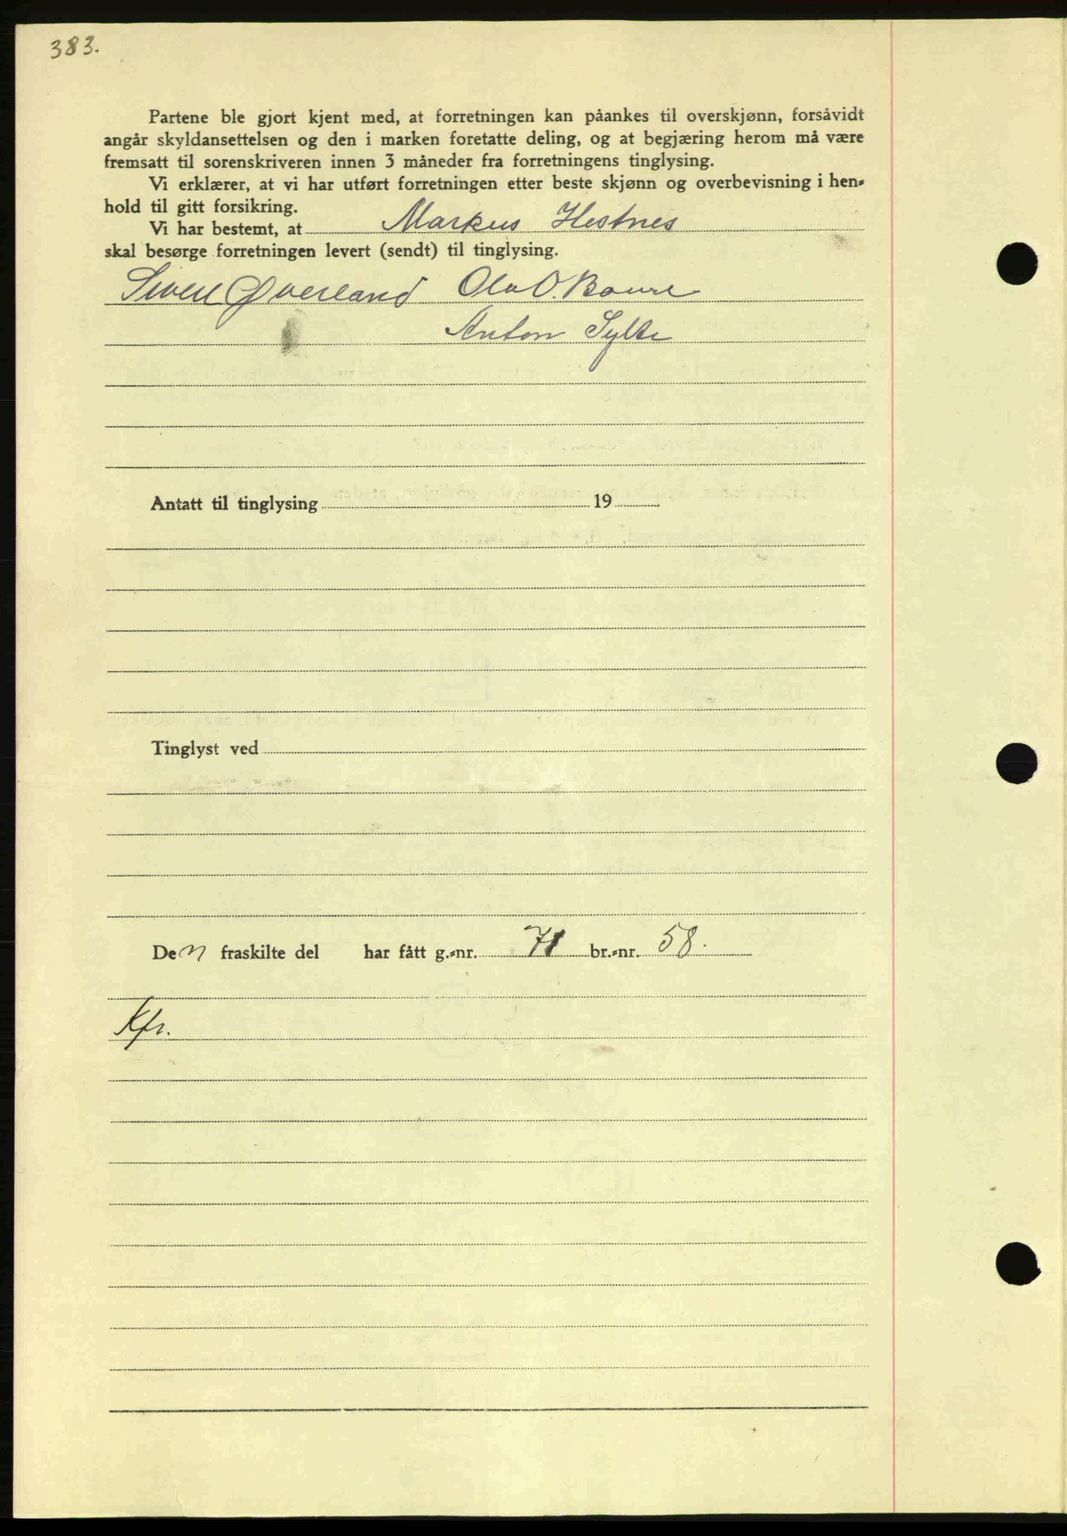 383.
Partene ble gjort kjent med, at forretningen kan påankes til overskjønn, forsåvidt
angår skyldansettelsen og den i marken foretatte deling, og at begjæring herom må være
fremsatt til sorenskriveren innen 3 måneder fra forretningens tinglysing.
Vi erklærer, at vi har utført forretningen etter beste skjønn og overbevisning i hen-
hold til gitt forsikring.
Vi har bestemt, at Markus Hestnes
skal besørge forretningen levert (sendt) til tinglysing.
Sivert Øverland Ola O.
Anton Sylte
Antatt til tinglysing 19
Tinglyst ved
Den fraskilte del har fått g.-nr. 71 br.-nr. 58.
Kfr.